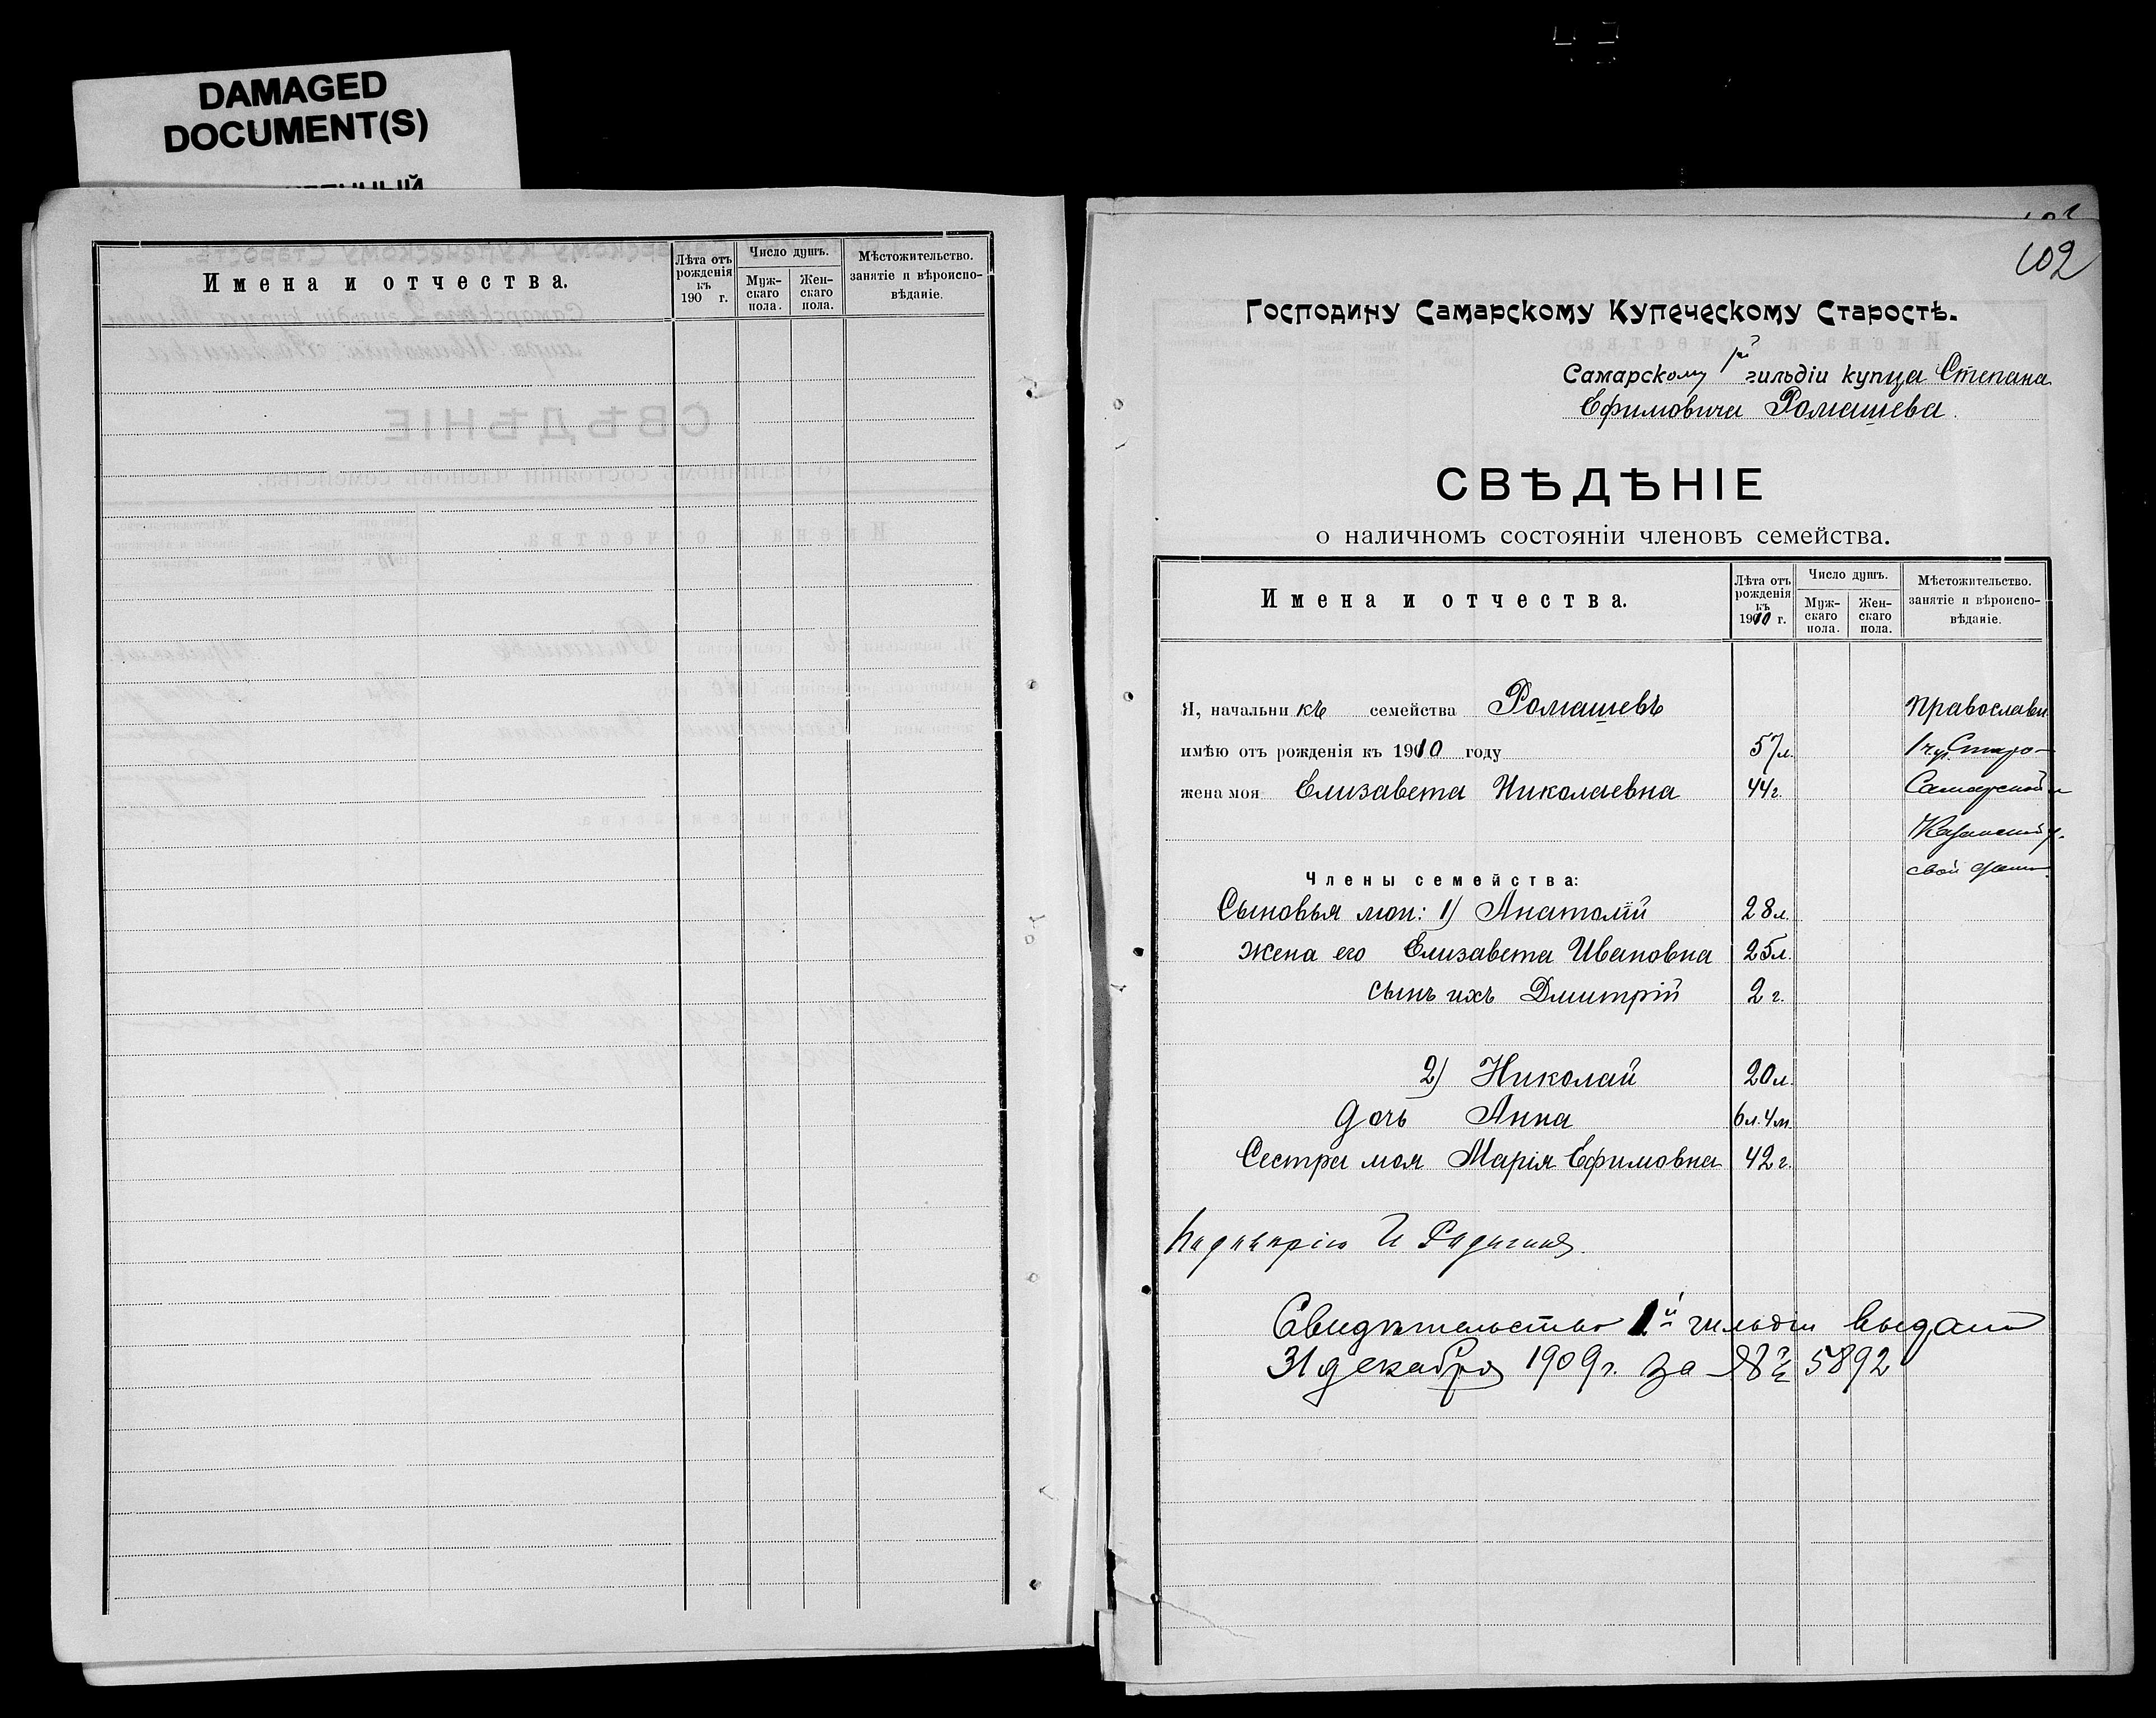 DAMAGED
DOCUMENT(S)
Имена и отчества.
Лѣта отъ рожденія къ 190 г.
Число душъ.
Муж-скаго пола.
Жен-скаго пола.
Мѣстожительство. занятіе и вѣроиспо-вѣданіе.
102
Господину Самарскому Купеческому Старостѣ.
Самарскому 1й гильдіи купца Степана
Ефимовича Ромашева.
СВѢДѢНІЕ
о наличномъ состояніи членовъ семейства.
Имена и отчества.
Лѣта отъ рожденія къ 1910 г.
Число душъ.
Муж-скаго пола.
Жен-скаго пола.
Мѣстожительство. занятіе и вѣроиспо-вѣданіе.
Я, начальникъ семейства Ромашевъ Православн.
имѣю отъ рожденія къ 1910 году 57 л. 1 ч. Старо-
жена моя Елизавета Николаевна 44 г. Самарской
Казанской у.
свой домъ
Члены семейства:
Сыновья мои: 1) Анатолій 28 л.
жена его Елизавета Ивановна 25 л.
сынъ ихъ Дмитрій 2 г.
2) Николай 20 л.
дочь Анна 6 л. 4 м.
Сестра моя Марія Ефимовна 42 г.
Свидѣтельство 1й гильдіи выдано
31 декабря 1909 г. за № 5892